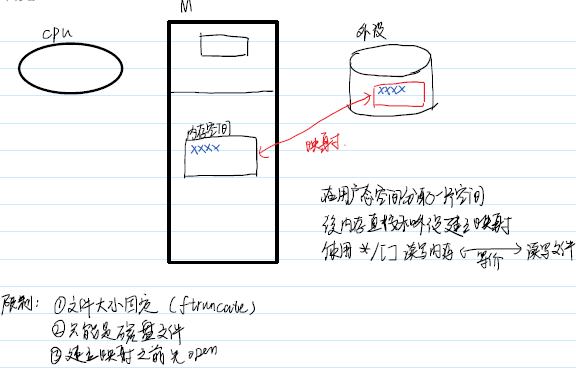 CPU
M
外设
xxxx
内存空间
xxxx
映射
在用户态空间分配一片空间
该内存直接和外设建立映射
使用 */[] 读写内存 <——等价——> 读写文件
限制: ①文件大小固定 (ftruncate)
②只能是磁盘文件
③建立映射之前先open